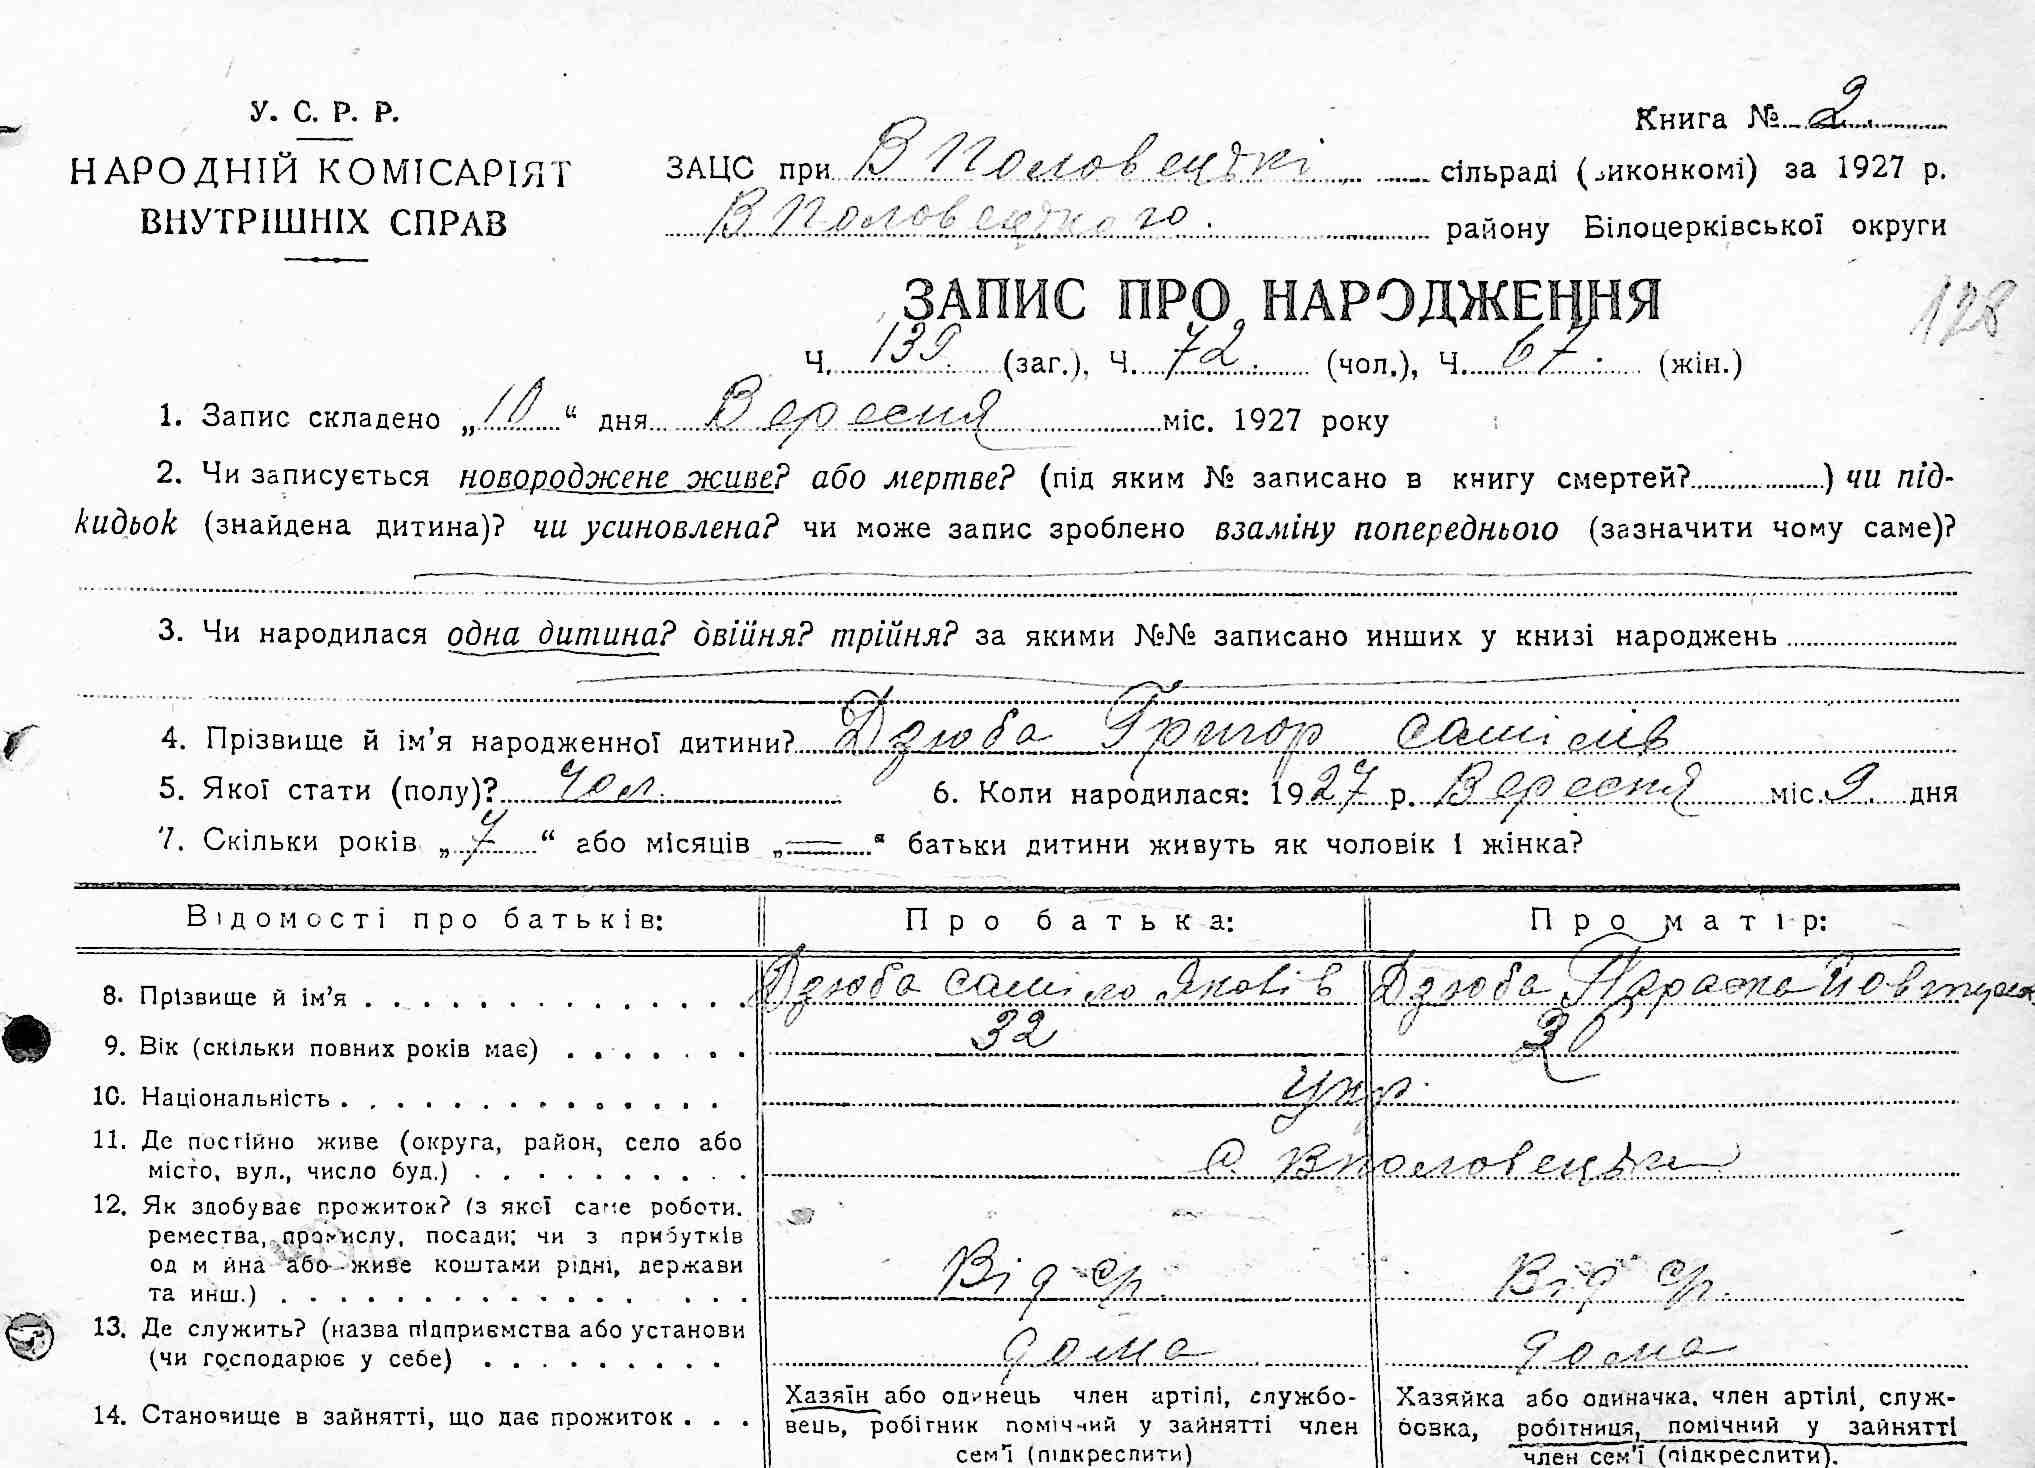 У. С. Р. Р.
НАРОДНІЙ КОМІСАРІЯТ
ВНУТРІШНІХ СПРАВ
Книга № 2
ЗАЦС при В Половецькі сільраді (виконкомі) за 1927 р.
В Половецького району Білоцерківської округи
ЗАПИС ПРО НАРОДЖЕННЯ
128
Ч. 139 (заг.), Ч. 72 (чол.), Ч. 67 (жін.)
1. Запис складено „10“ дня Вересня міс. 1927 року
2. Чи записується новороджене живе? або мертве? (під яким № записано в книгу смертей?..........) чи під-
кидьок (знайдена дитина)? чи усиновлена? чи може запис зроблено взаміну попереднього (зазначити чому саме)?
3. Чи народилася одна дитина? двійня? трійня? за якими №№ записано инших у книзі народжень
4. Прізвище й ім'я народженної дитини? Дзюба Григор самілів
5. Якої стати (полу)? чол. 6. Коли народилася: 1927 р. Вересня міс. 9 дня
7. Скільки років „7“ або місяців „=“ батьки дитини живуть як чоловік і жінка?
Відомості про батьків: Про батька: Про матір:
8. Прізвище й ім'я Дзюба саміло Яковів Дзюба Параска
9. Вік (скільки повних років має) 32
10. Національність укр.
11. Де постійно живе (округа, район, село або
місто, вул., число буд.) с. В половецьки
12. Як здобуває прожиток? (з якої саме роботи,
ремества, промислу, посади; чи з прибутків
од майна або живе коштами рідні, держави
та инш.) Від ср. Від ср.
13. Де служить? (назва підприємства або установи
(чи господарює у себе) дома дома
14. Становище в зайнятті, що дає прожиток
Хазяїн або одинець член артілі, службо-
вець, робітник помічний у зайнятті член
сем'ї (підкреслити)
Хазяйка або одиначка, член артілі, служ-
бовка, робітниця, помічний у зайнятті
член сем'ї (підкреслити).